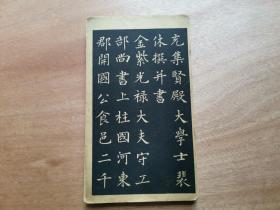 充集賢殿大學士裴
休撰并書
金紫光禄大夫守工
部尚書上柱國河東
郡開國公食邑二千